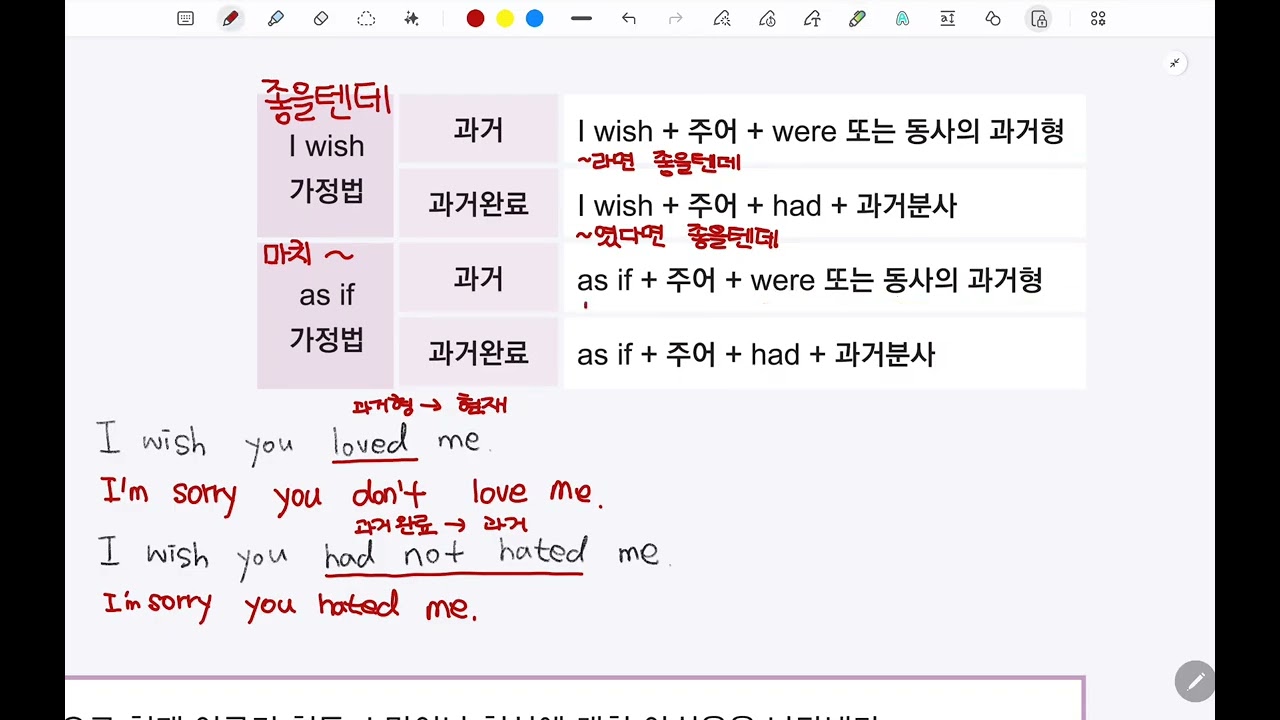 좋을텐데
I wish
가정법
과거
I wish + 주어 + were 또는 동사의 과거형
~라면 좋을텐데
과거완료
I wish + 주어 + had + 과거분사
~였다면 좋을텐데
마치 ~
as if
가정법
과거
as if + 주어 + were 또는 동사의 과거형
과거완료
as if + 주어 + had + 과거분사
과거형 → 현재
I wish you loved me.
I'm sorry you don't love me.
과거완료 → 과거
I wish you had not hated me.
I'm sorry you hated me.